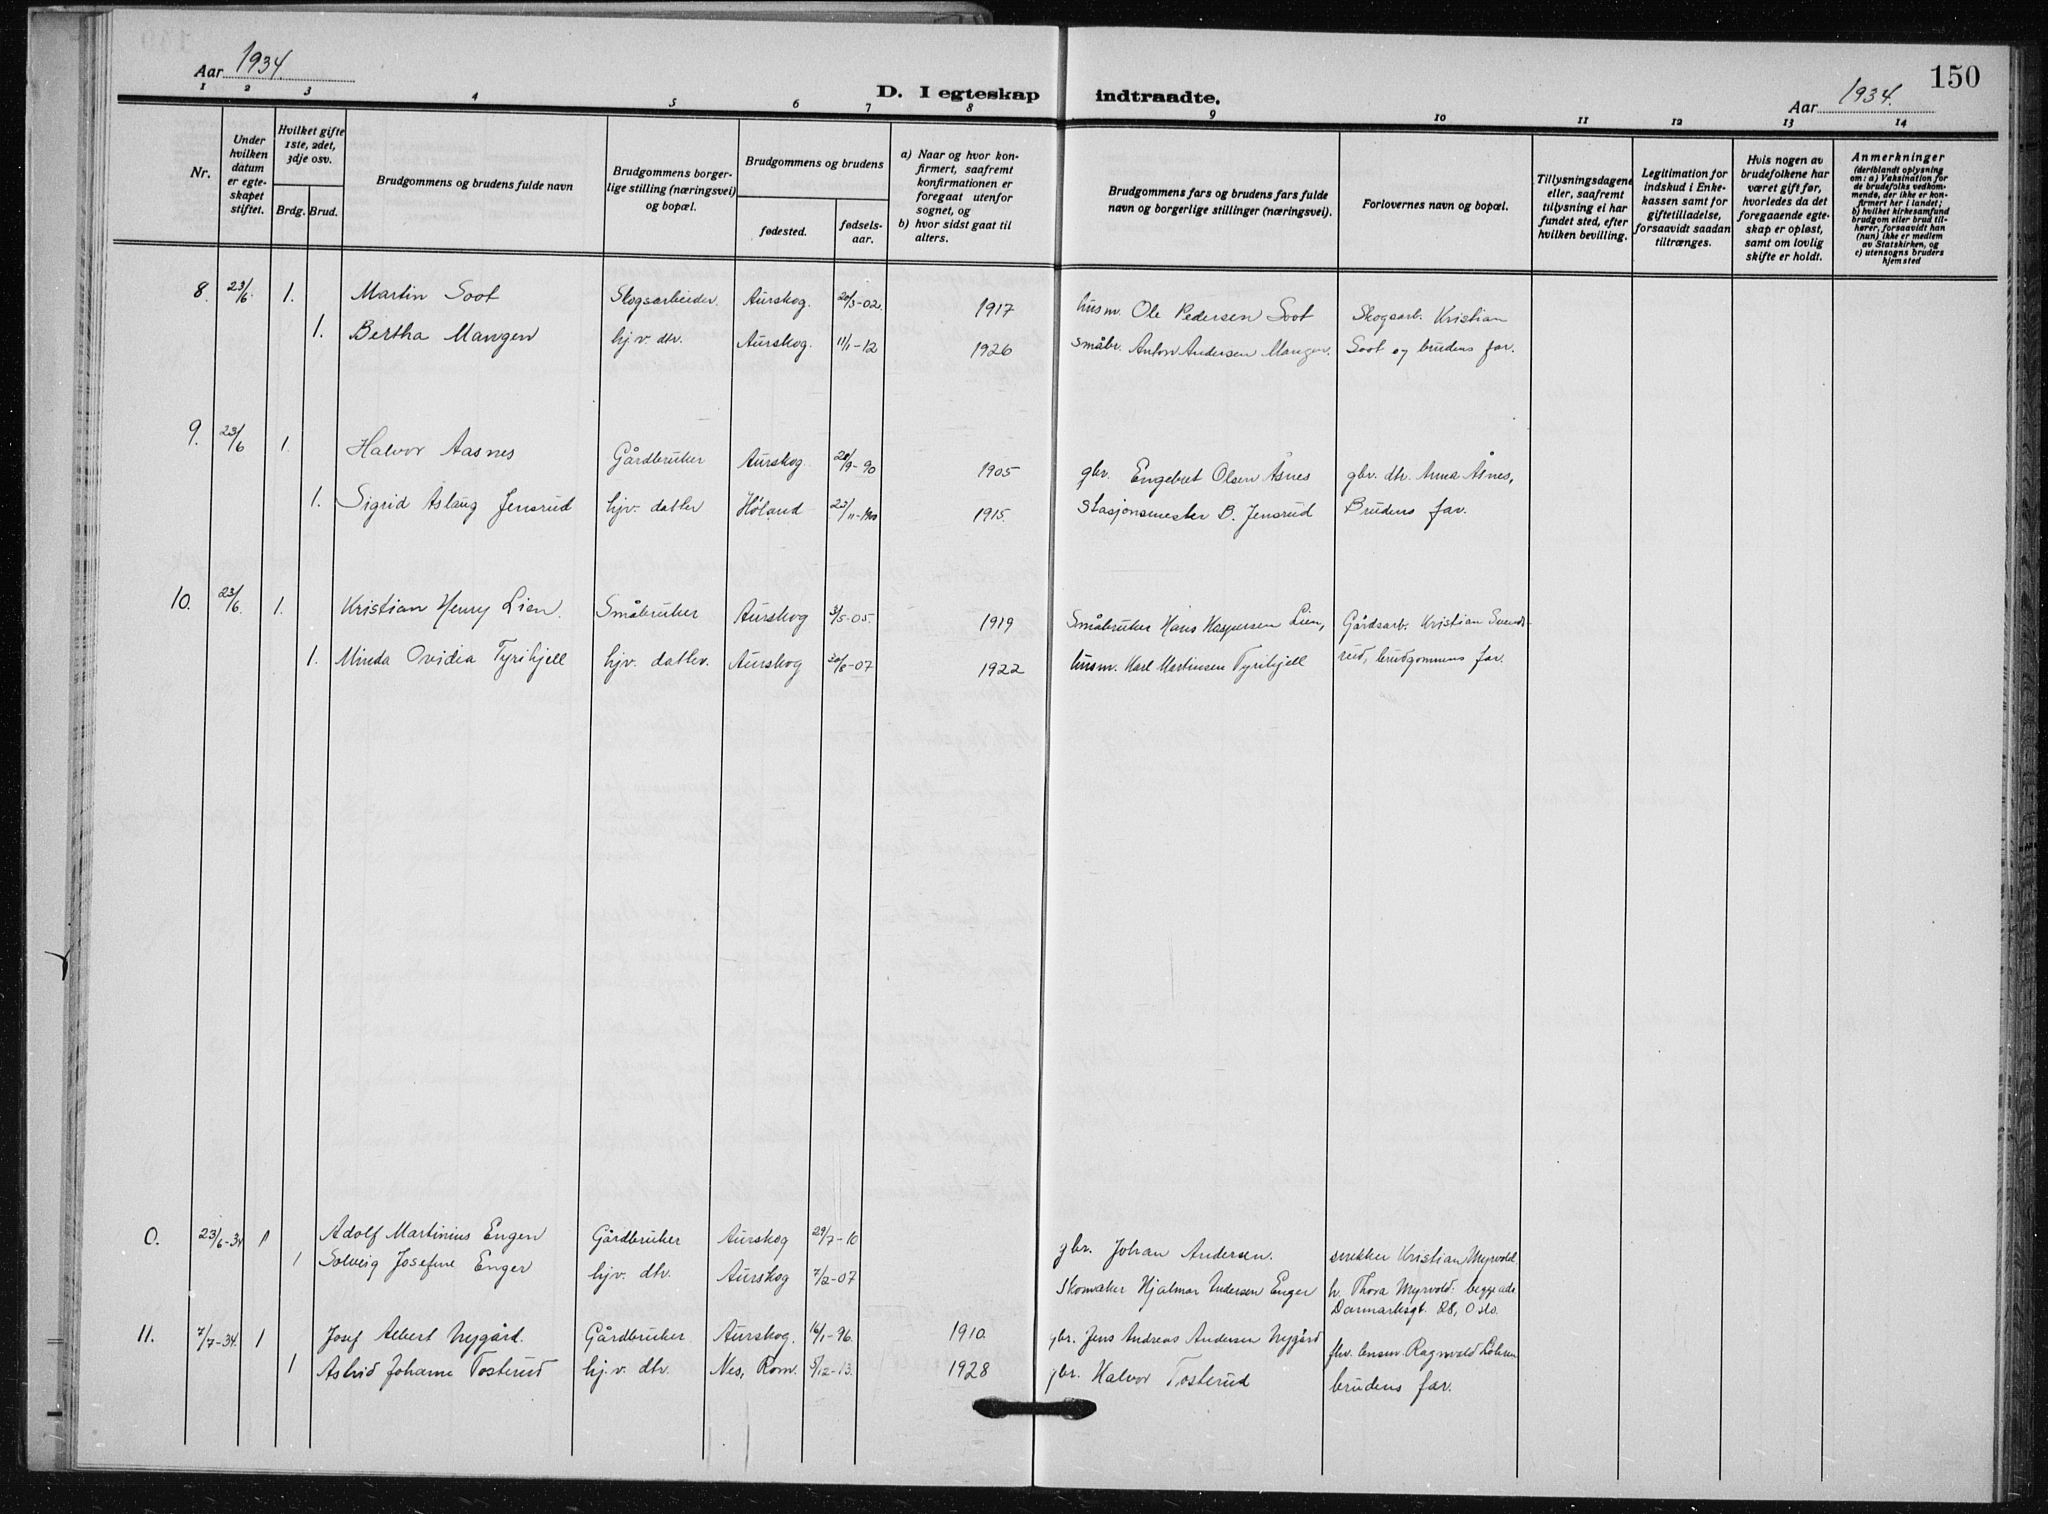 150
Aar 1934.
D. I egteskap indtraadte.
Aar 1934.
1 2 3 4 5 6 7 8 9 10 11 12 13 14
Nr.
Under hvilken datum er egteskapet stiftet.
Hvilket gifte 1ste, 2det, 3dje osv.
Brdg. Brud.
Brudgommens og brudens fulde navn
Brudgommens borgerlige stilling (næringsvei) og bopæl.
Brudgommens og brudens
fødested.
fødselsaar.
a) Naar og hvor konfirmert, saafremt konfirmationen er foregaat utenfor sognet, og
b) hvor sidst gaat til alters.
Brudgommens fars og brudens fars fulde navn og borgerlige stillinger (næringsvei).
Forlovernes navn og bopæl.
Tillysningsdagene eller, saafremt tillysning ei har fundet sted, efter hvilken bevilling.
Legitimation for indskud i Enkekassen samt for giftetilladelse, forsaavidt saadan tiltrænges.
Hvis nogen av brudefolkene har været gift før, hvorledes da det foregaaende egteskap er opløst, samt om lovlig skifte er holdt.
Anmerkninger (deriblandt oplysning om: a) Vaksination for de brudefolks vedkommende, der ikke er konfirmert her i landet; b) hvilket kirkesamfund brudgom eller brud tilhører, forsaavidt han (hun) ikke er medlem av Statskirken, og c) utensogns bruders hjemsted
8. 23/6. 1. Martin Soot Skogsarbeider. Aurskog. 20/3-02. 1917 husm. Ole Pedersen Soot Skogsarb. Kristian
1. Bertha Mangen hj.v. dtr. Aurskog. 11/1-12 1926 småbr. Anton Andersen Mangen. Soot og brudens far.
9. 23/6 1. Halvor Aasnes Gårdbruker Aurskog. 20/9-90 1905 gbr. Engebret Olsen Åsnes gbr. dtr. Anna Åsnes,
1. Sigrid Aslaug Jensrud hjv. datter Høland 23/11-1900 1915. Stasjonsmester B. Jensrud Brudens far.
10. 23/6. 1. Kristian Henry Lien. Småbruker Aurskog 3/5-05. 1919 Småbruker Hans Kaspersen Lien, Gårdsarb. Kristian Svends-
1. Minda Ovidia Tyrihjell hjv. datter. Aurskog 20/8-07 1922 husm. Karl Martinsen Tyrihjell rud, brudgommens far.
0. 23/6-34 1 Adolf Martinius Engen Gårdbruker Aurskog 29/7-10 gbr. Johan Andersen. snekker Kristian Myrvold.
1 Solveig Josefine Enger hjv. dtr. Aurskog 7/2-07 Skomaker Hjalmar Andersen Enger h. Thora Myrvold: begge adr.
Danmarksgt. 28, Oslo.
11. 7/7-34. 1 Josef Albert Nygård. Gårdbruker. Aurskog. 16/1-96. 1910. gbr. Jens Andreas Andersen Nygård fhv. Ragnvald
1 Astrid Johanne Tosterud hj.v. dtr. Nes, Rom. 5/12-13. 1928 gbr. Halvor Tosterud brudens far.